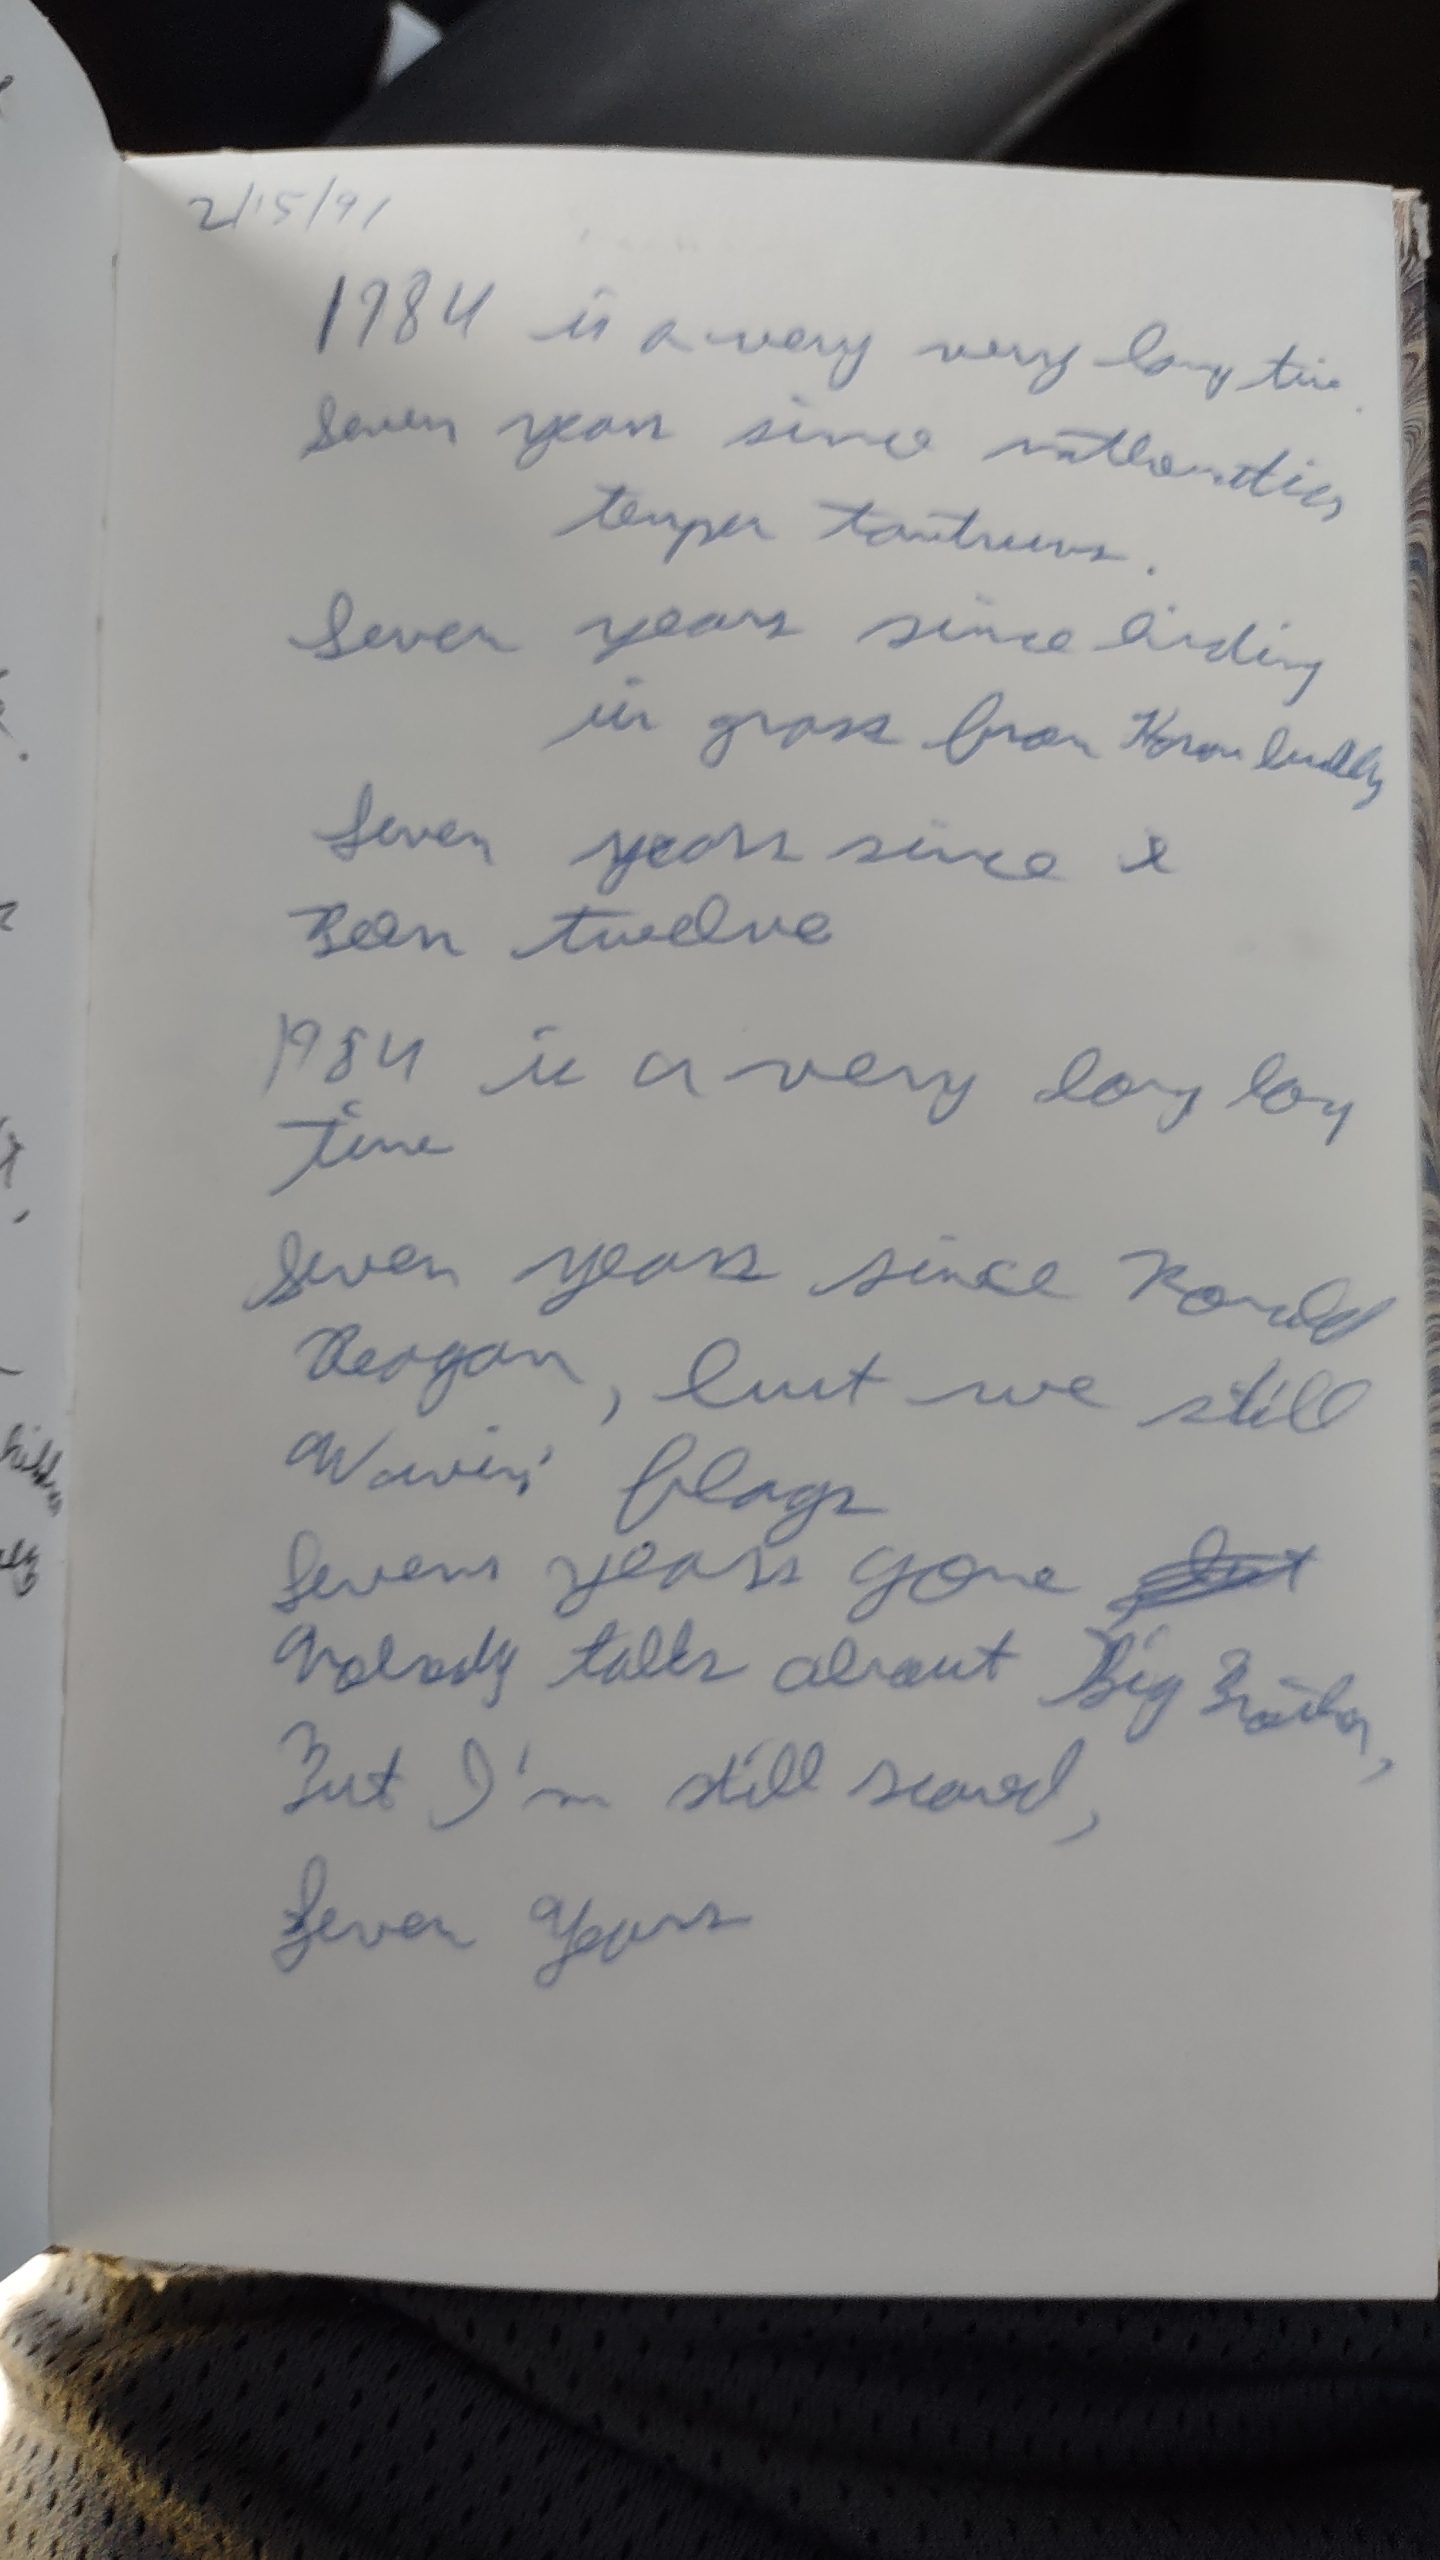 2/15/91
1984 is a very very long time.
Seven years since
temper tantrums.
Seven years since hiding
in grass from buddy
Seven years since I
Been twelve
1984 is a very long long
time
Seven years since Ronald
Reagan, but we still
Wavin' flags
Sevens years gone
Nobody talks about Big Brother,
But I'm still scared,
Seven Years